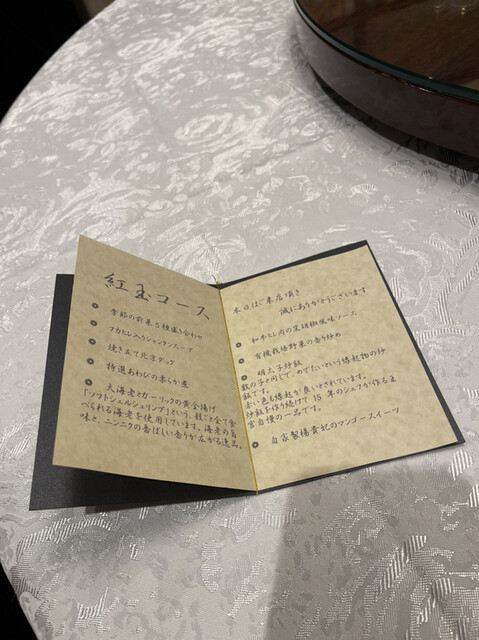 紅玉コース
季節の前菜5種盛り合わせ
フカヒレ入りシャンタンスープ
焼き立て北京ダック
特選あわびの柔らか煮
大海老とガーリックの黄金揚げ
「ソフトシェルシュリンプ」という、殻ごと全て食
べられる海老を使用しています。海老の旨
味と、ニンニクの香ばしい香りが広がる逸品。
本日はご来店頂き
誠にありがとうございます
和牛ヒレ肉の黒胡椒風味ソース
有機栽培野菜の香り炒め
明太子炒飯
数の子と同じで、めでたいという縁起物の炒
飯です。
赤い色も縁起が良いとされています。
炒飯を作り続けて15年のシェフが作る王
宮自慢の一品です。
自家製楊貴妃のマンゴースイーツ